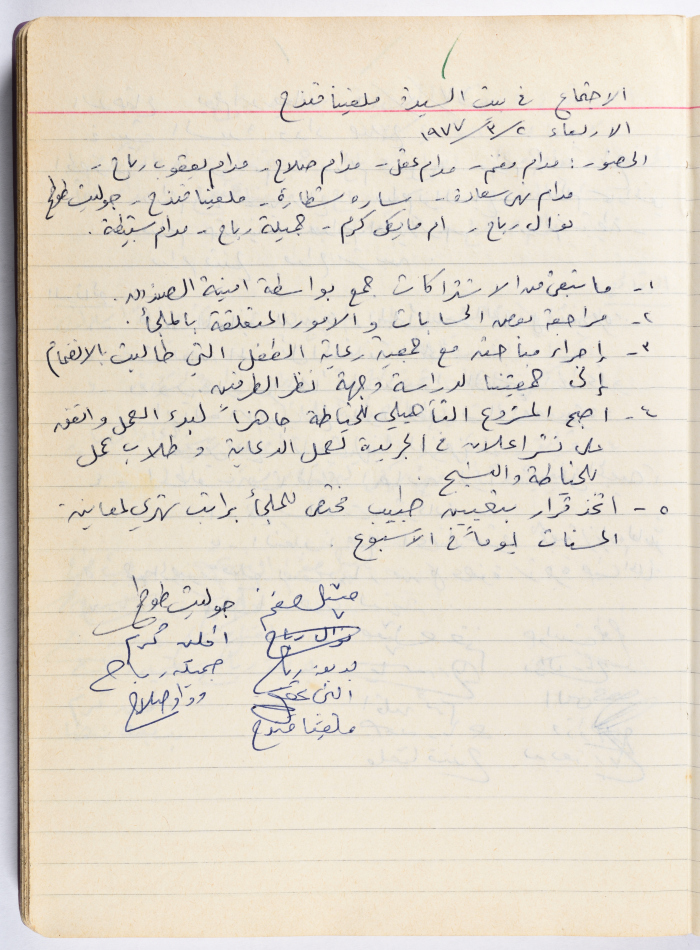 الاجتماع في بيت السيدة ملفينا قندح
الاربعاء ٢/٣/١٩٧٧
الحضور: مدام مغنم - مدام عقل - مدام صلاح - مدام يعقوب رباح -
مدام نهى سعادة - ساره شطارة - ملفينا قندح - جوليت طوطح
نوال رباح - ام مايكل كرم - جميلة رباح - مدام سبيطة .
١- ما تبقى من الاشتراكات جمع بواسطة امينة الصندوق .
٢- مراجعة بعض الحسابات و الامور المتعلقة بالملجأ .
٣- إجراء مباحثة مع جمعية رعاية الطفل التي طالبت بالانضمام
إلى جمعيتنا لدراسة وجهة نظر الطرفين
٤- اصبح المشروع التأهيلي للخياطة جاهزاً لبدء العمل واتفق
على نشر اعلان في الجريدة لعمل الدعاية و طلاب عمل
للخياطة والنسيج .
٥- اتخذ قرار بتعيين طبيب مختص للملجأ براتب شهري لمعاينة
المسنات يوماً في الاسبوع .
جوليت طوطح
نوال رباح
كرم
رباح
جميلة رباح
وداد صلاح
ملفينا قندح